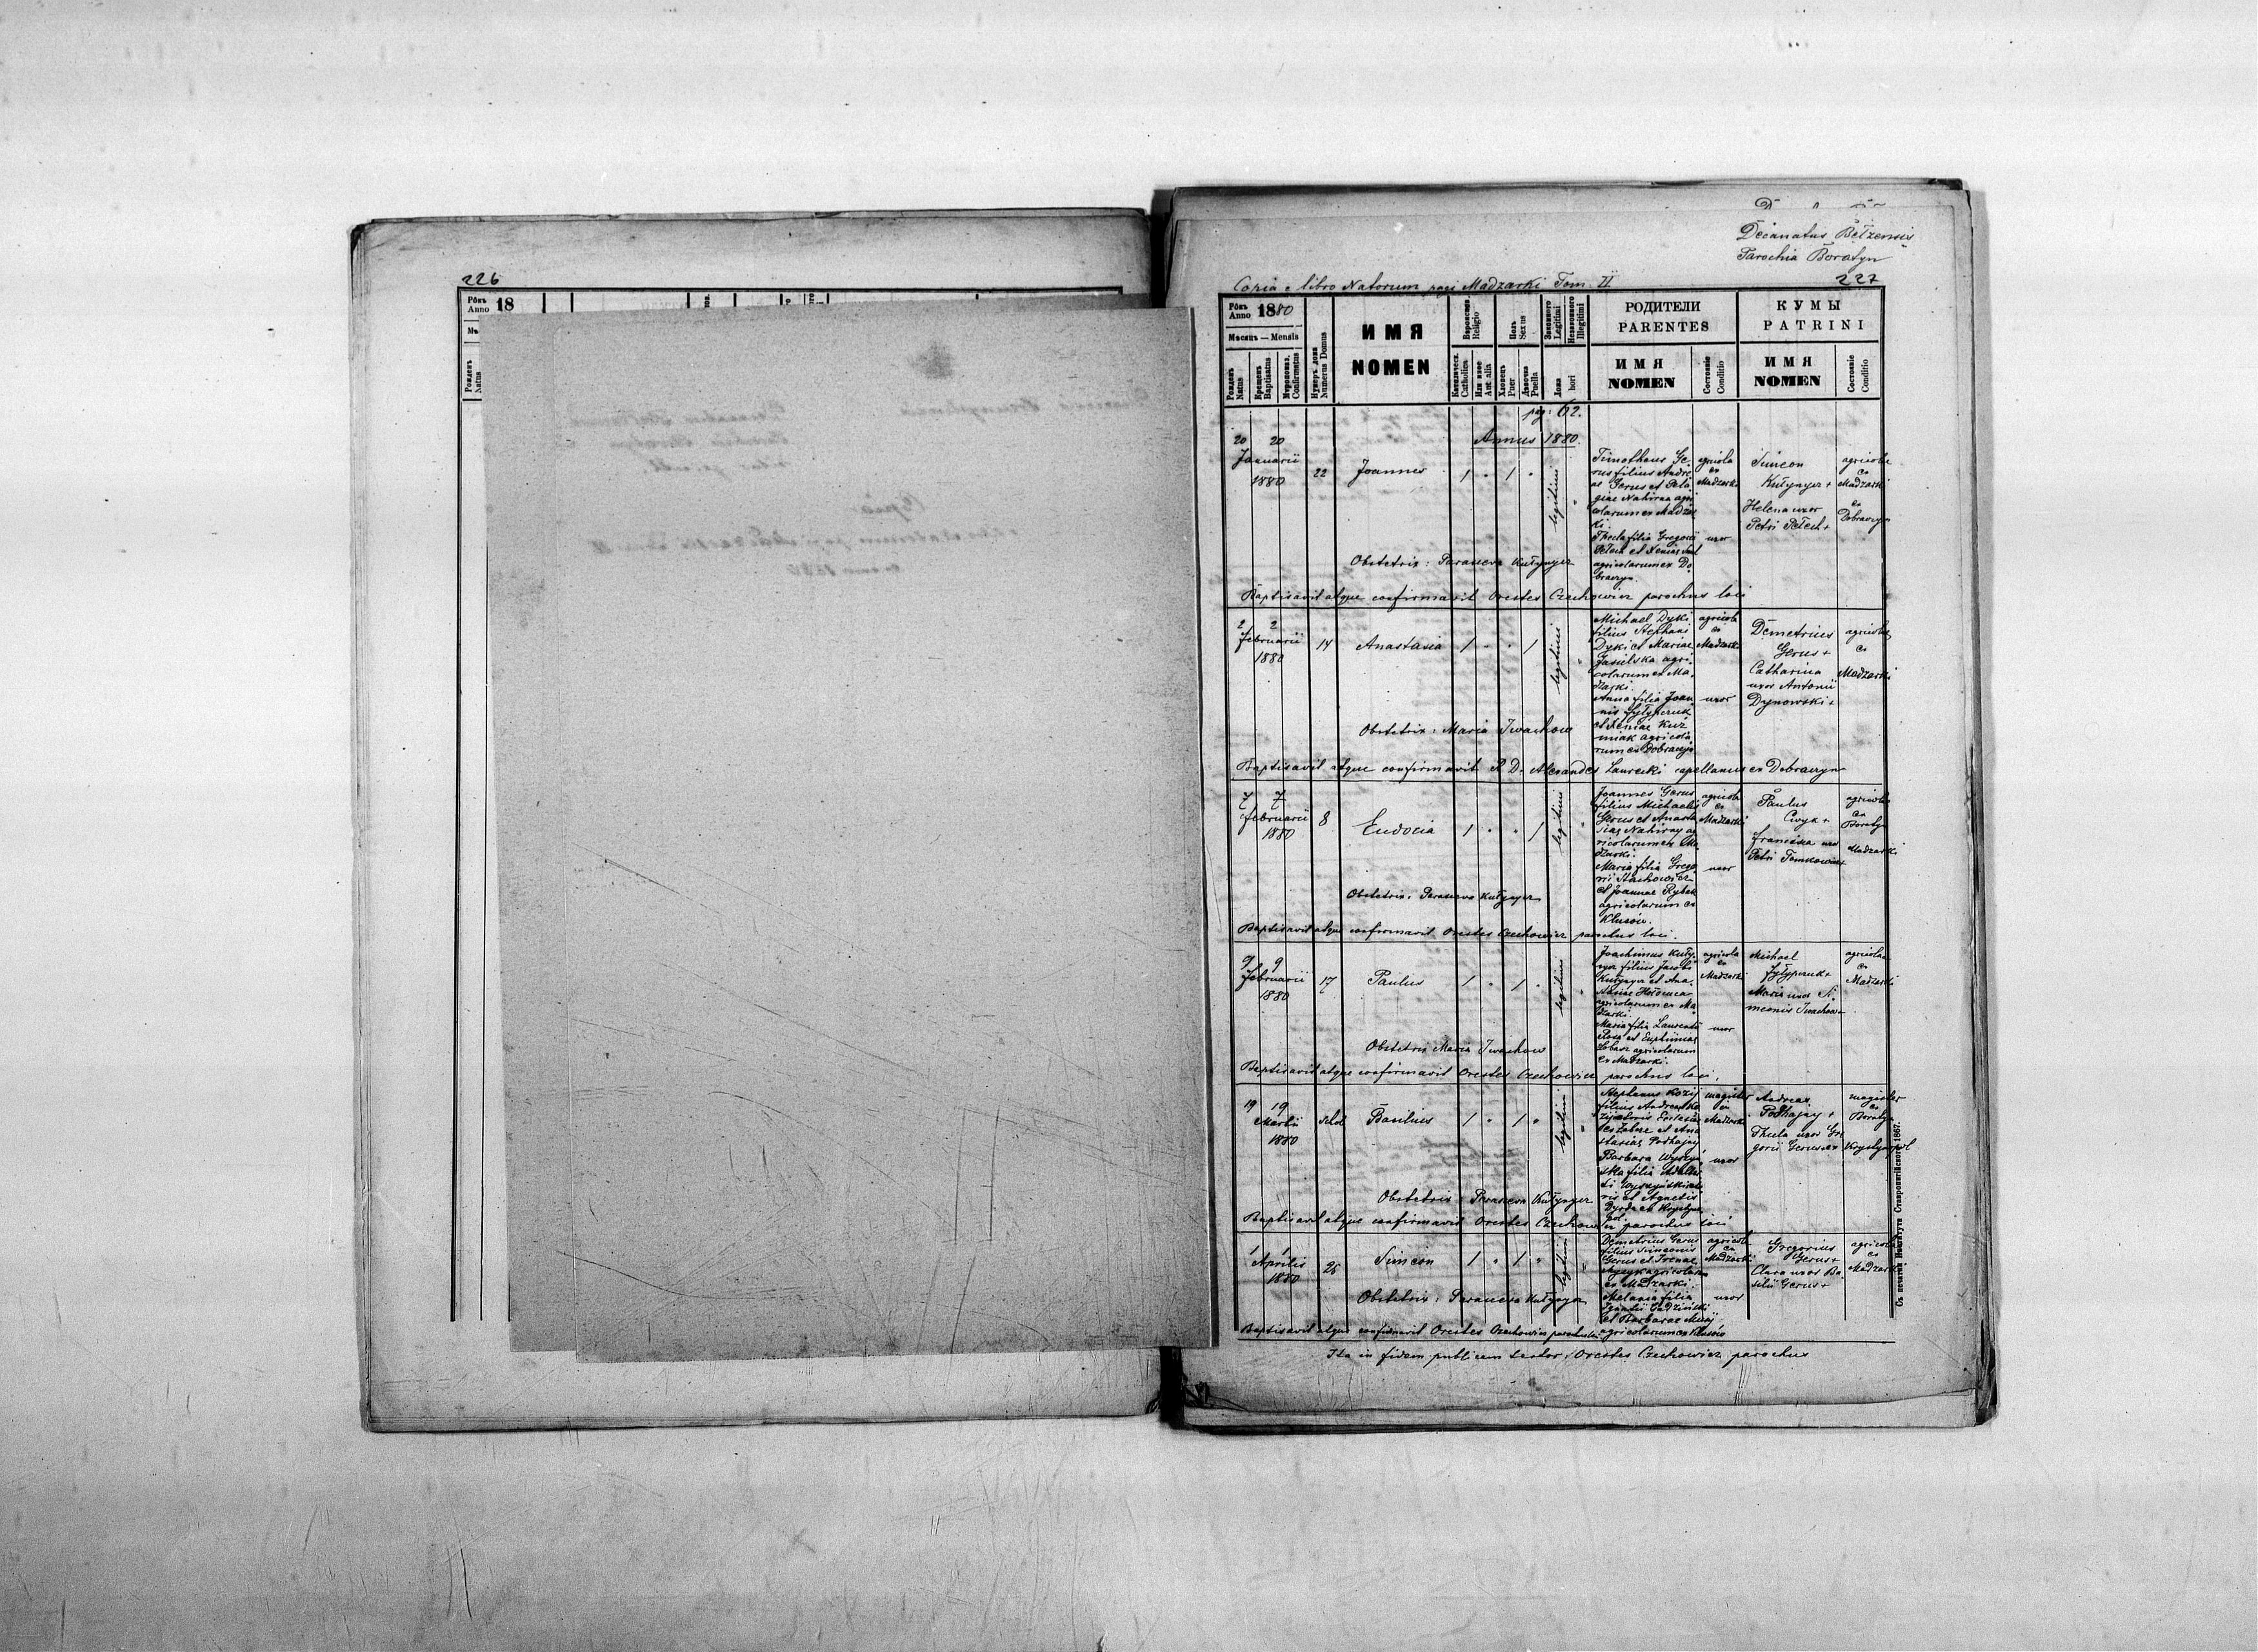 226
Рôкъ
Anno 18
Рожденъ
Natus
Decanatus Bełzensis
Parochia Boratyn
227
Copia e libro Natorum pagi Madzarki Tom II.
Рôкъ
Anno 1880
Мѣсяць — Mensis
Рожденъ
Natus
Крещенъ
Baptisatus
Мѵропомаз.
Confirmatus
Нумеръ дома
Numerus Domus
ИМЯ
NOMEN
Религіо
Religio
Католическ.
Catholica
Или иное
Aut alia
Полъ
Sexus
Хлопецъ
Puer
Дѣвочка
Puella
Законного
Legitimi
Незаконного
Illegitimi
Ложа
thori
РОДИТЕЛИ
PARENTES
ИМЯ
NOMEN
Состояніе
Conditio
КУМЫ
PATRINI
ИМЯ
NOMEN
Состояніе
Conditio
pag: 62.
Annus 1880.
20 20
Januarii
1880
22
Joannes
1 " 1 "
legitimi
Timotheus Ge-
rus filius Andre
ae Gerus et Pela
giae Nahirna agri
colarum ex Madzar
ki.
Thecla filia Gregorii
Pełech et Xeniae
agricolarum ex Do
braczyn.
agricola
ex
Madzarki
uxor
Simeon
Kułynycz +
Helena uxor
Petri Pełech +
agricola
ex
Madzarki
ex
Dobraczyn
Obstetrix: Parasceva Kułynycz
Baptisavit atque confirmavit Orestes Czechowicz parochus loci
2 2
Februarii
1880
14
Anastasia
1 " " 1
legitimi
Michael Dyki
filius Stephani
Dyki et Mariae
Jasielska agri-
colarum ex Ma
dzarki.
Anna filia Joan
nis Fyłypczuk
et Xeniae Kuź
niak agricola
rum ex Dobraczyn
agricola
ex
Madzarki
uxor
Demetrius
Gerus +
Catharina
uxor Antonii
Dynowski +
agricolae
ex
Madzarki
Obstetrix: Maria Iwachow
Baptisavit atque confirmavit R. D. Alexander Laurecki capellanus ex Dobraczyn
7 7
Februarii
1880
8
Eudocia
1 " " 1
legitimi
Joannes Gerus
filius Michaelis
Gerus et Anasta
siae Nahirny ag
ricolarum ex Ma
dzarki.
Maria filia Grego
rii Stachowicz
et Joannae Rybak
agricolarum ex
Klusów.
agricola
ex
Madzarki
uxor
Paulus
Cwyk +
Francisca uxor
Petri Tomkowicz +
agricola
ex
Boratyn
Madzarki
Obstetrix: Parasceva Kułynycz
Baptisavit atque confirmavit Orestes Czechowicz parochus loci.
9 9
Februarii
1880
17
Paulus
1 " 1 "
legitimi
Joachimus Kuły
nycz filius Jacobi
Kułynycz et Ana
stasiae
agricolarum ex Ma
dzarki.
Maria filia Laurentii
et Euphimiae
agricolarum
ex Madzarki.
agricola
ex
Madzarki
uxor
Michael
Fyłypczuk +
Maria uxor Si
meonis Iwachow +
agricolae
ex
Madzarki
Obstetrix Maria Iwachow
Baptisavit atque confirmavit Orestes Czechowicz parochus loci.
19 19
Martii
1880
Basilius
1 " 1 "
legitimi
Stephanus Kozij
filius Andreae Ko
zij
et Ana
stasiae Podhajny
Barbara Wyszyń
ska filia Adalber
ti Wyszyński
et Agnetis
Dyrda ex Krystyno
pol.
magister
ex
Madzarki
uxor
Andreas
Podhajny +
Thecla uxor Gre
gorii Gerus ex
magister
ex
Boratyn
Krystynopol
Obstetrix: Parasceva Kułynycz
Baptisavit atque confirmavit Orestes Czechowicz parochus loci
1 1
Aprilis
1880
26
Simeon
1 " 1 "
legitimi
Demetrius Gerus
filius Simeonis
Gerus et Irenae
agricolarum
ex Madzarki.
Melania filia
Ignatii
et Barbarae
agricolarum ex Klusów
agricola
ex
Madzarki
uxor
Gregorius
Gerus +
Clara uxor Ba
silii Gerus +
agricolae
ex
Madzarki
Obstetrix: Parasceva Kułynycz
Baptisavit atque confirmavit Orestes Czechowicz parochus loci
Ita in fidem publicam testor, Orestes Czechowicz parochus
Съ печатни Института Ставропигійского 1867.